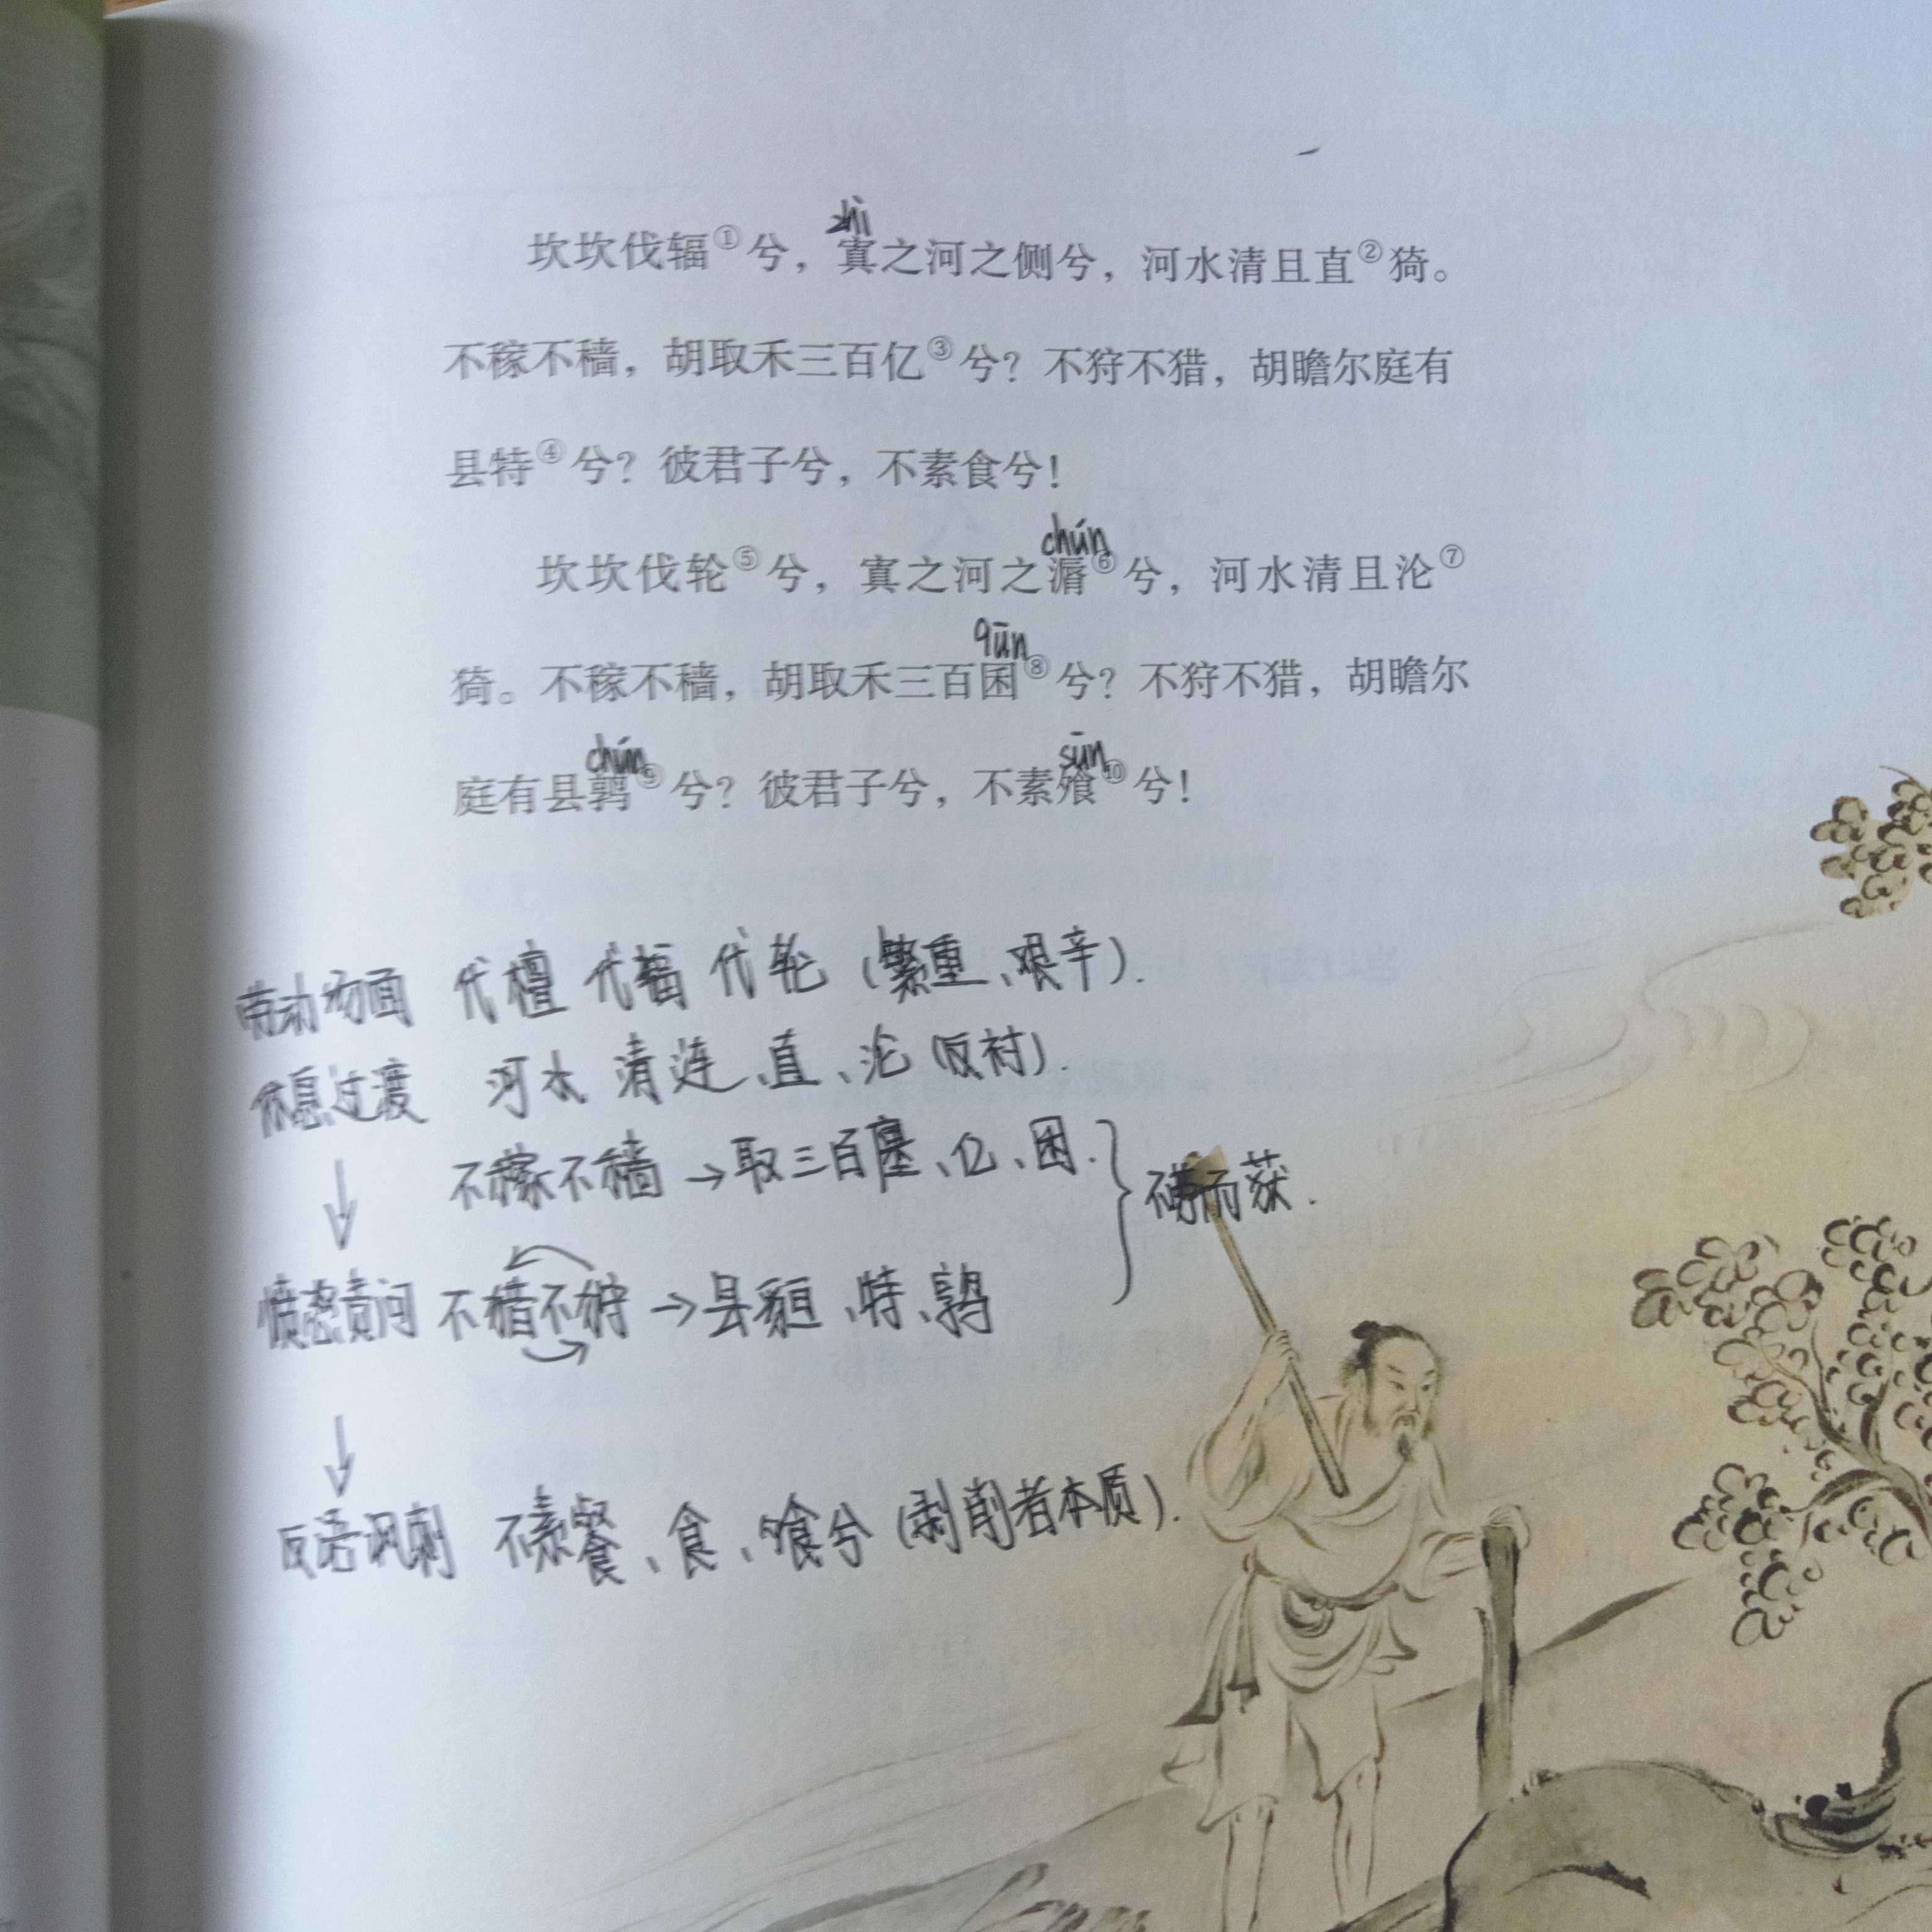 坎坎伐辐①兮，寘之河之侧兮，河水清且直②猗。
zhì
不稼不穑，胡取禾三百亿③兮？不狩不猎，胡瞻尔庭有
县特④兮？彼君子兮，不素食兮！
chún
坎坎伐轮⑤兮，寘之河之漘⑥兮，河水清且沦⑦
qūn
猗。不稼不穑，胡取禾三百囷⑧兮？不狩不猎，胡瞻尔
chún sūn
庭有县鹑⑨兮？彼君子兮，不素飧⑩兮！
劳动场面 代檀 代辐 代轮（繁重、艰辛）.
休息过渡 河水 清涟、直、沦（反衬）.
不稼不穑→取三百廛、亿、困.
不劳而获.
愤怒责问 不猎不狩→县貆、特、鹑
反语讽刺 不素餐、食、飧兮（剥削者本质）.